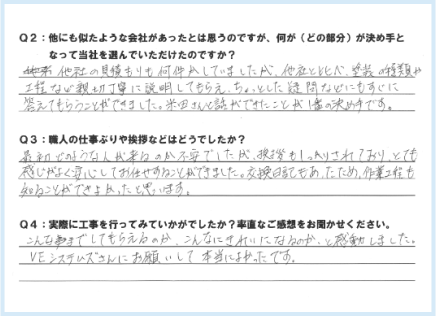 Q2：他にも似たような会社があったとは思うのですが、何が（どの部分）が決め手と
なって当社を選んでいただけたのですか？
他社の見積もりも何件かしていましたが、他社と比べ、塗装の種類や
工程など親切丁寧に説明してもらえ、ちょっとした疑問などにもすぐに
答えてもらうことができました。米田さんと話ができたことが1番の決め手です。
Q3：職人の仕事ぶりや挨拶などはどうでしたか？
最初どのような人が来るのか不安でしたが、挨拶もしっかりされており、とても
感じがよく安心してお任せすることができました。交換日記もあったため、作業工程も
知ることができよかったと思います。
Q4：実際に工事を行ってみていかがでしたか？率直なご感想をお聞かせください。
こんな事までしてもらえるのか、こんなにきれいになるのか、と感動しました。
VEシステムズさんにお願いして本当によかったです。